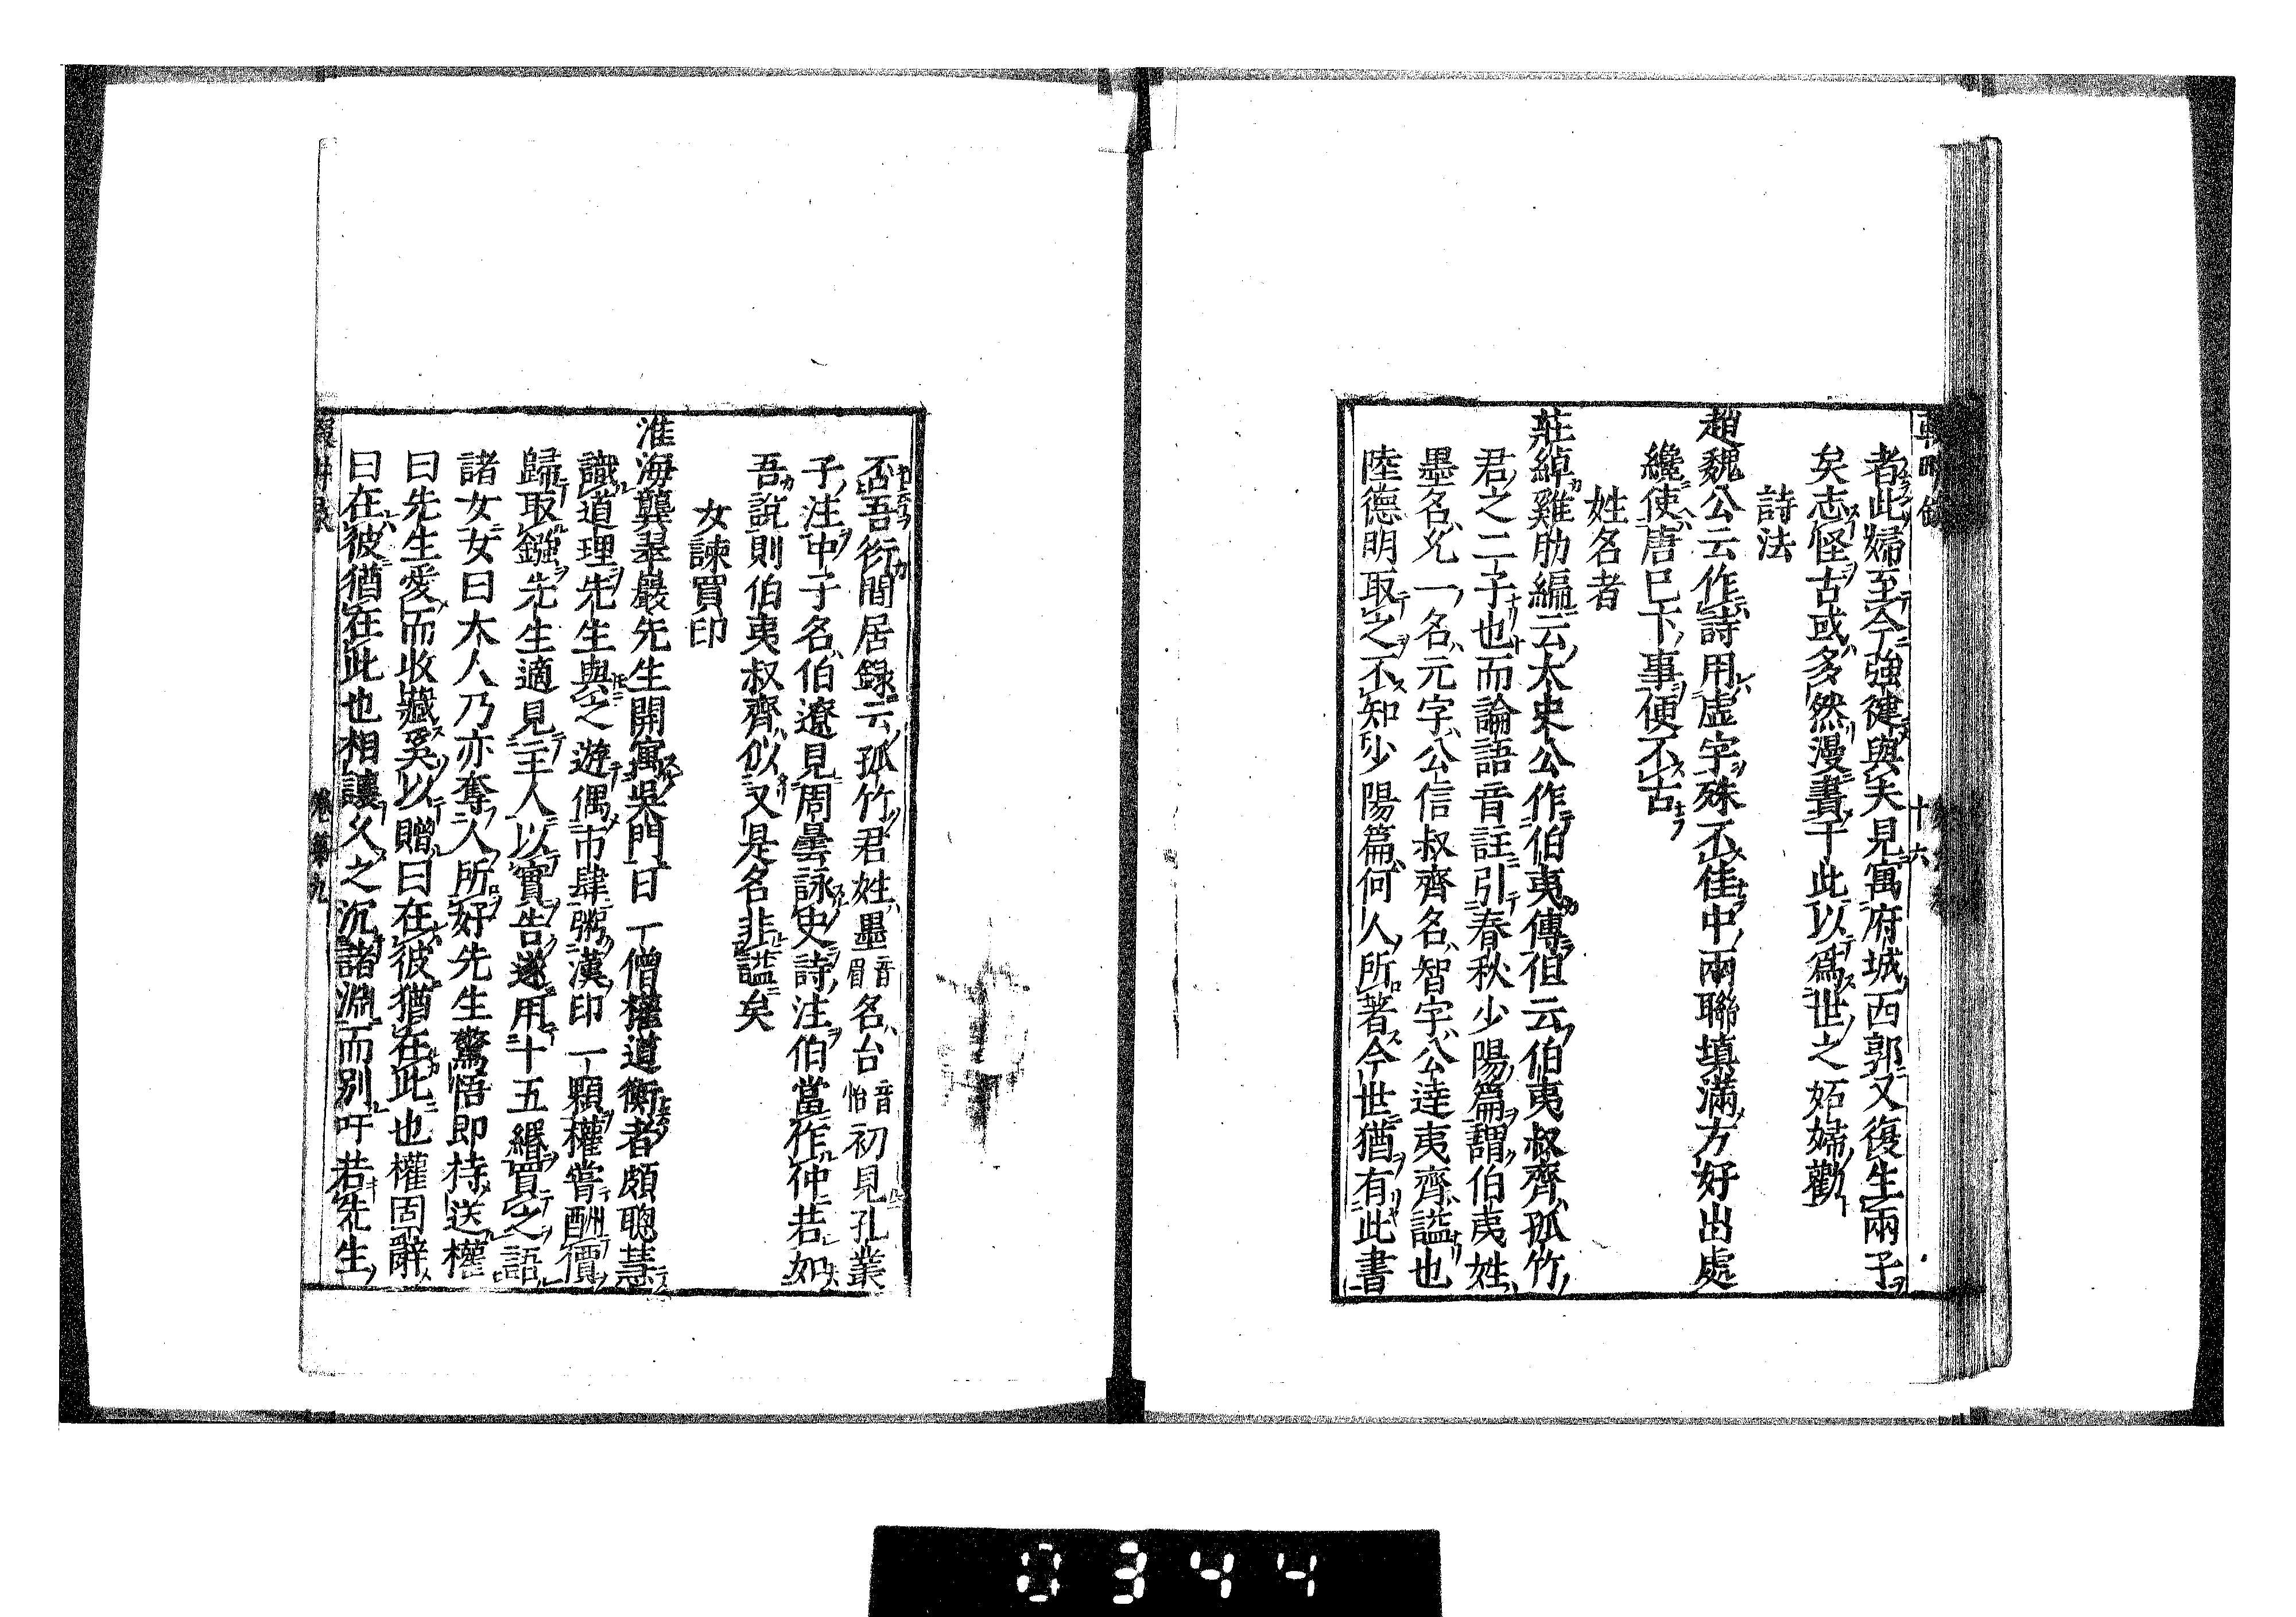 者此婦至今強健與夫見寓府城西郭又復生兩子
矣志怪古或多然漫書于此以爲世之妬婦勸
詩法
趙魏公云作詩用虛字殊不佳中兩聯填滿方好出處
纔使唐已下事便不古
姓名者
莊綽雞肋編云太史公作伯夷傳但云伯夷叔齊孤竹
君之二子也而論語音註引春秋少陽篇謂伯夷姓
墨名允一名元字公信叔齊名智字公達夷齊謚也
陸德明取之不知少陽篇何人所著今世猶有此書
否吾衍閒居録云孤竹君姓墨音眉名台音怡初見孔叢
子注中子名伯遼見周曇詠史詩注伯當作仲若如
吾説則伯夷叔齊似又是名非謚矣
女諫買印
淮海龔翠巖先生開寓吳門日一僧權道衡者頗聰慧
識道理先生與之遊偶市肆粥漢印一顆權嘗酬價
歸取鏹先生適見主人以實告遂用十五緡買之語
諸女女曰大人乃亦奪人所好先生驚悟即持送權
曰先生愛而收藏奚以贈曰在彼猶在此也權固辭
曰在彼猶在此也相讓久之沉諸淵而別吁若先生
十六
卷第九
0344